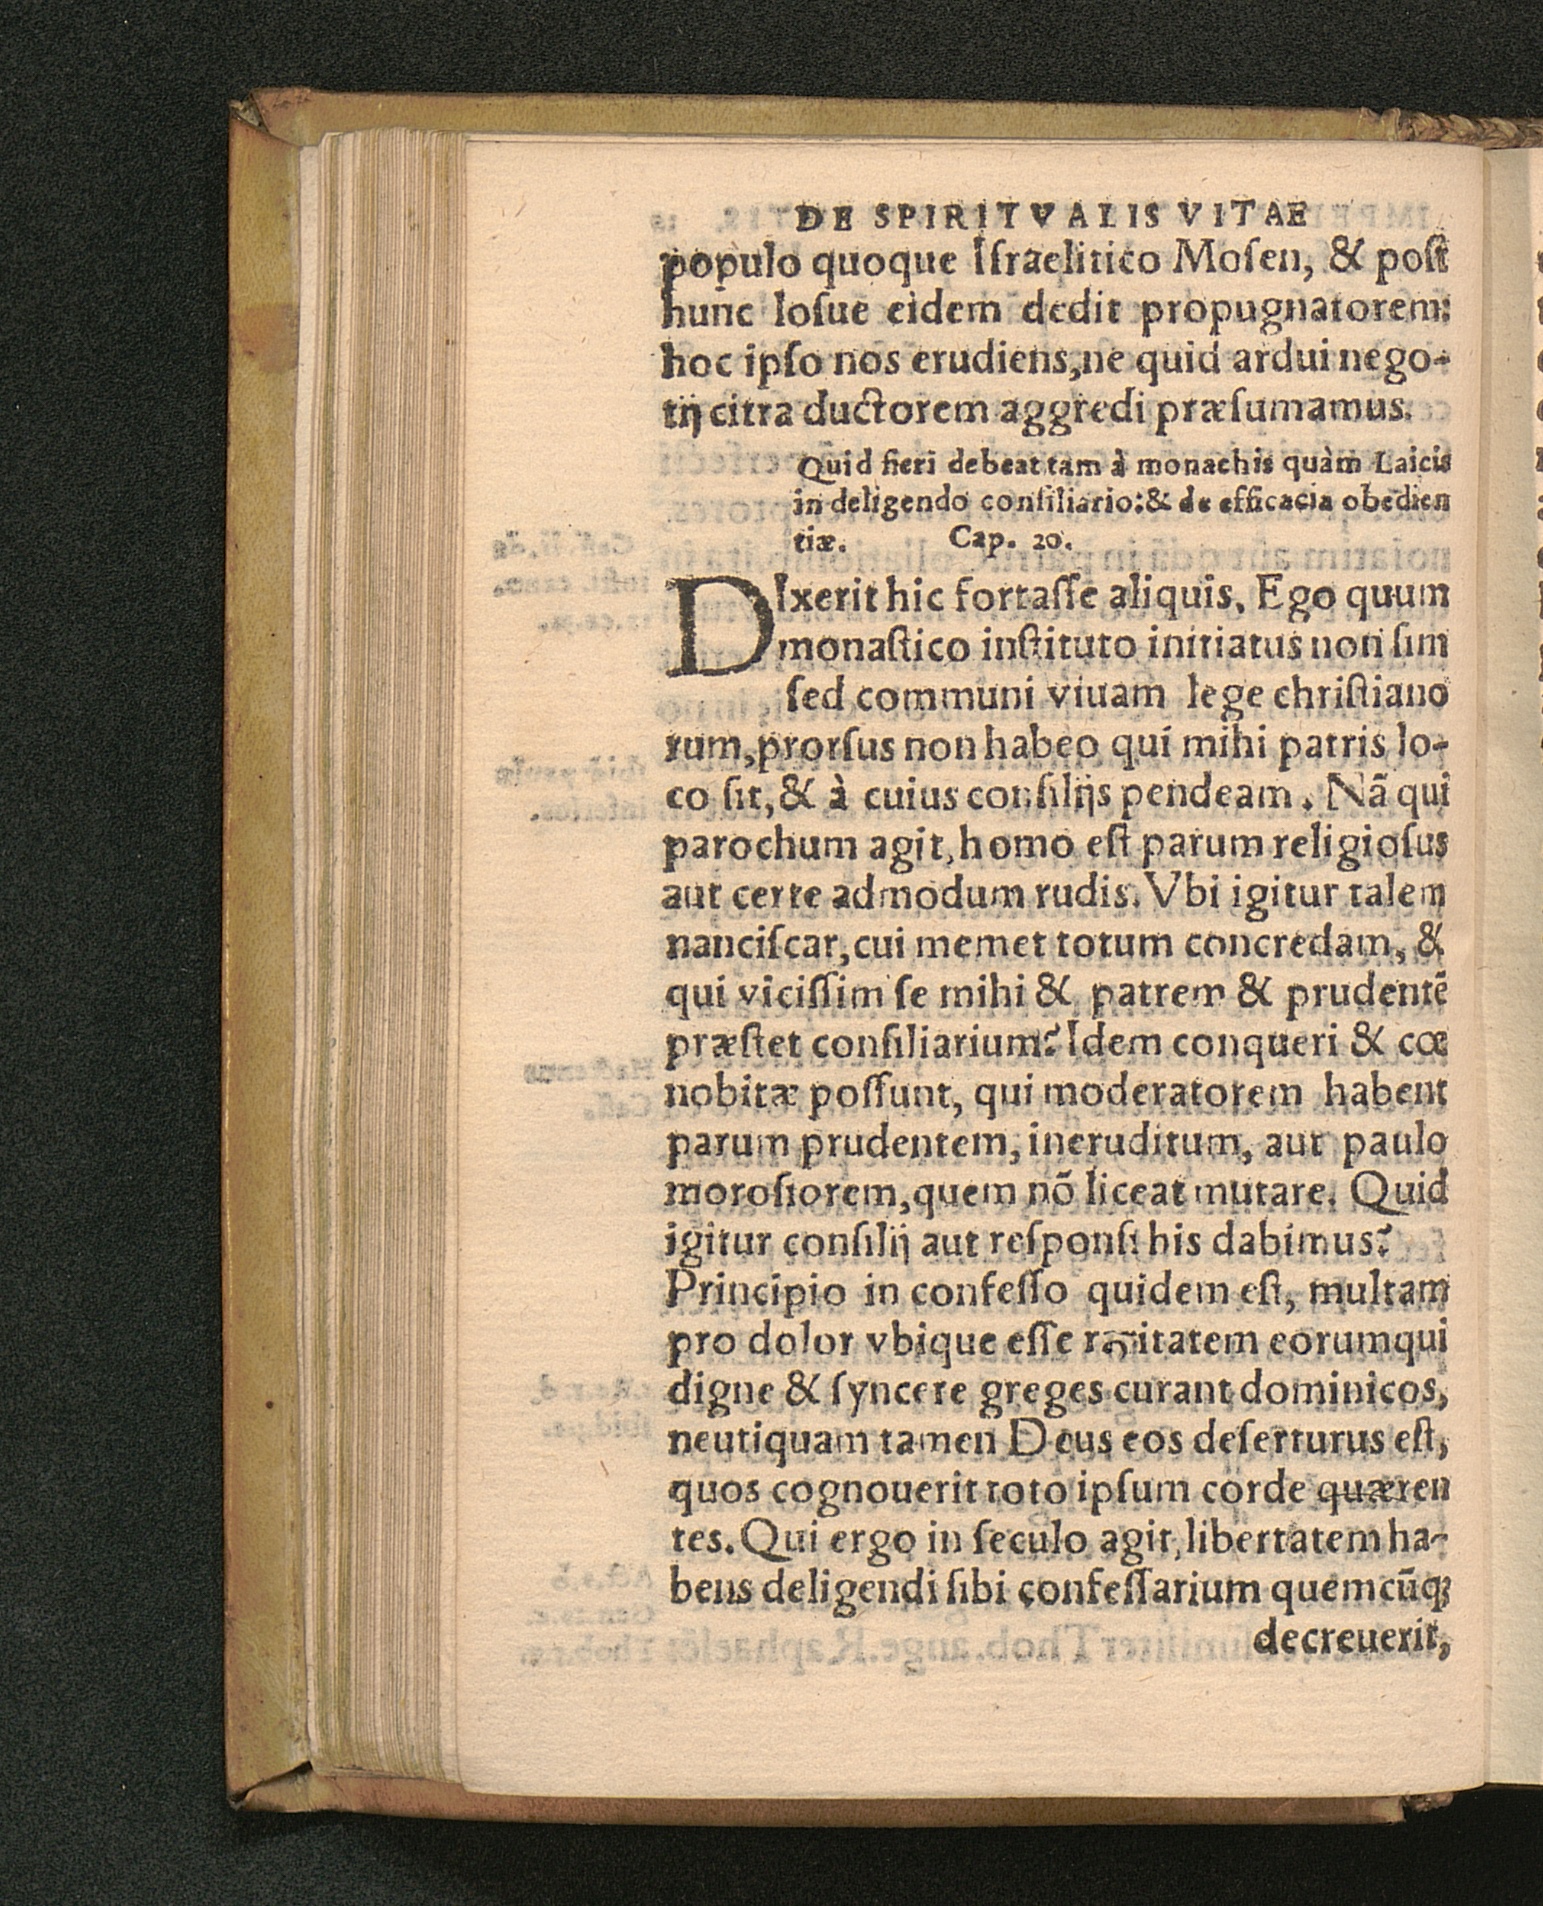 DE SPIRITVALIS VITAE
populo quoque Iſraelitico Moſen, & poſt
hunc Ioſue eidem dedit propugnatorem:
hoc ipſo nos erudiens, ne quid ardui nego-
tij citra ductorem aggredi præſumamus.
Quid fieri debeat tam à monachis quàm Laicis
in deligendo conſiliario: & de efficacia obedien
tiæ. Cap. 20.
DIxerit hic fortaſſe aliquis. Ego quum
monaſtico inſtituto initiatus non ſim
ſed communi viuam lege chriſtiano
rum, prorſus non habeo qui mihi patris lo-
co ſit, & à cuius conſilijs pendeam. Nã qui
parochum agit, homo eſt parum religioſus
aut certe admodum rudis. Vbi igitur talem
nanciſcar, cui memet totum concredam, &
qui viciſſim ſe mihi & patrem & prudentẽ
præſtet conſiliarium? Idem conqueri & cœ
nobitæ poſſunt, qui moderatorem habent
parum prudentem, ineruditum, aut paulo
moroſiorem, quem nõ liceat mutare. Quid
igitur conſilij aut reſponſi his dabimus?
Principio in confeſſo quidem eſt, multam
pro dolor vbique eſſe raritatem eorumqui
digne & ſyncere greges curant dominicos,
neutiquam tamen Deus eos deſerturus eſt,
quos cognouerit toto ipſum corde quæren
tes. Qui ergo in ſeculo agit, libertatem ha-
bens deligendi ſibi confeſſarium quemcũq;
decreuerit,